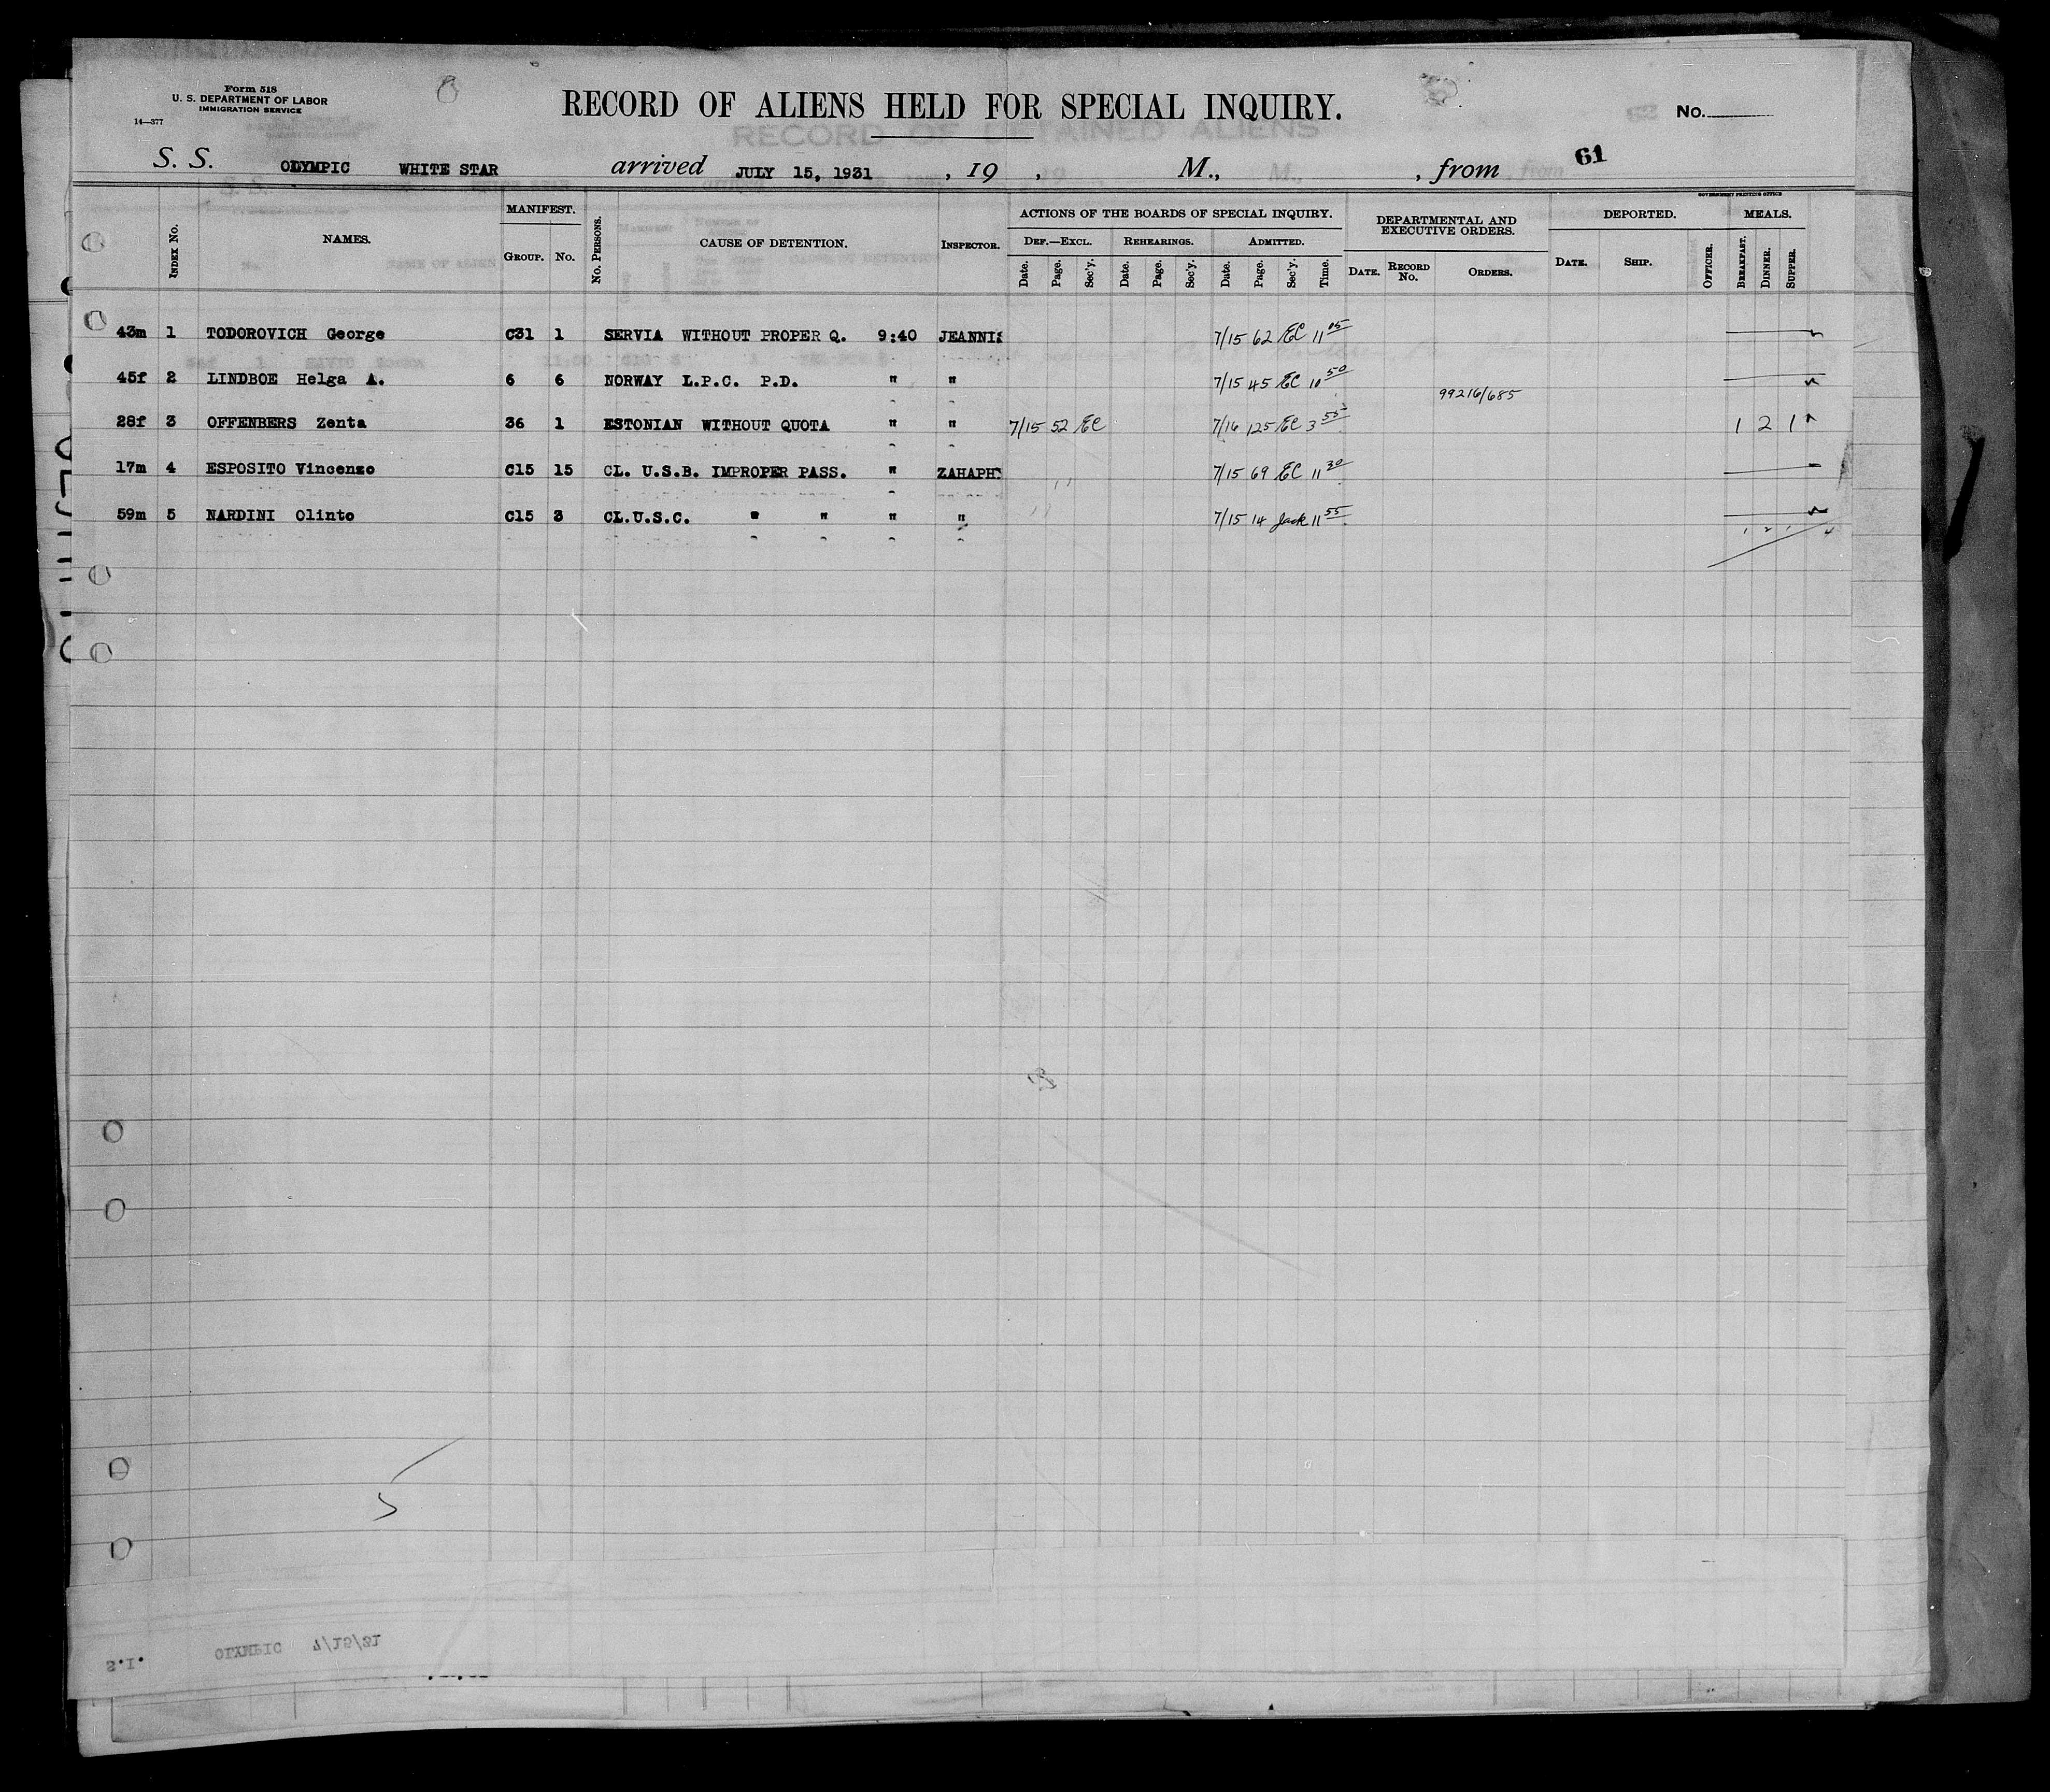 Form 518
U. S. DEPARTMENT OF LABOR
IMMIGRATION SERVICE
14—377
RECORD OF ALIENS HELD FOR SPECIAL INQUIRY.
No.
S. S. OLYMPIC WHITE STAR arrived JULY 15, 1931 , 19 , M., , from 61
GOVERNMENT PRINTING OFFICE
INDEX No. NAMES. MANIFEST. GROUP. No. No. PERSONS. CAUSE OF DETENTION. INSPECTOR. ACTIONS OF THE BOARDS OF SPECIAL INQUIRY. DEF.—EXCL. Date. Page. Sec'y. REHEARINGS. Date. Page. Sec'y. ADMITTED. Date. Page. Sec'y. Time. DEPARTMENTAL AND EXECUTIVE ORDERS. DATE. RECORD No. ORDERS. DEPORTED. DATE. SHIP. OFFICER. MEALS. BREAKFAST. DINNER. SUPPER.
43m 1 TODOROVICH George C31 1 SERVIA WITHOUT PROPER Q. 9:40 JEANNIS 7/15 62 EC 11 05
45f 2 LINDBOE Helga A. 6 6 NORWAY L.P.C. P.D. " " 7/15 45 EC 10 50 99216/685
28f 3 OFFENBERS Zenta 36 1 ESTONIAN WITHOUT QUOTA " " 7/15 52 EC 7/16 125 EC 3 55 1 2 1
17m 4 ESPOSITO Vincenzo C15 15 CL. U.S.B. IMPROPER PASS. " ZAHAPH 7/15 69 EC 11 30
59m 5 NARDINI Olinto C15 3 CL.U.S.C. " " " " 7/15 14 Jack 11 55
1 2 1 4
5
S.I. OLYMPIC 7/15/31